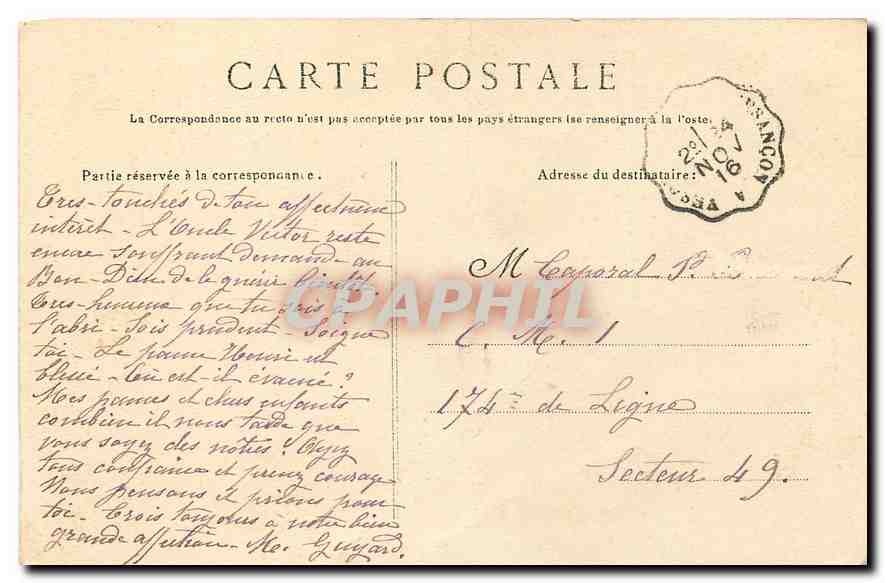 CARTE POSTALE
La Correspondance au recto n'est pas acceptée par tous les pays étrangers (se renseigner à la Poste)
Partie réservée à la correspondance.
Tres-touchés de ton affectueux
intérêt - L'Oncle Victor reste
encore souffrant demande au
Bon-Dieu de le guérir bientôt
Tres-heureux que tu sois à
l'abri - Sois prudent - Soigne
toi - Le pauvre Henri est
blessé - Où est-il évacué?
Mes pauvres et chers enfants
combien il nous tarde que
vous soyez des nôtres! Ayez
tous confiance et prenez courage
Nous pensons et prions pour
toi - Crois toujours à notre bien
grande affection - Me. Guyard.
BESANÇON A VESO
2º/24
NOV
16
Adresse du destinataire:
M Caporal
C. M. 1
174e de Ligne
Secteur 49.
CPAPHIL